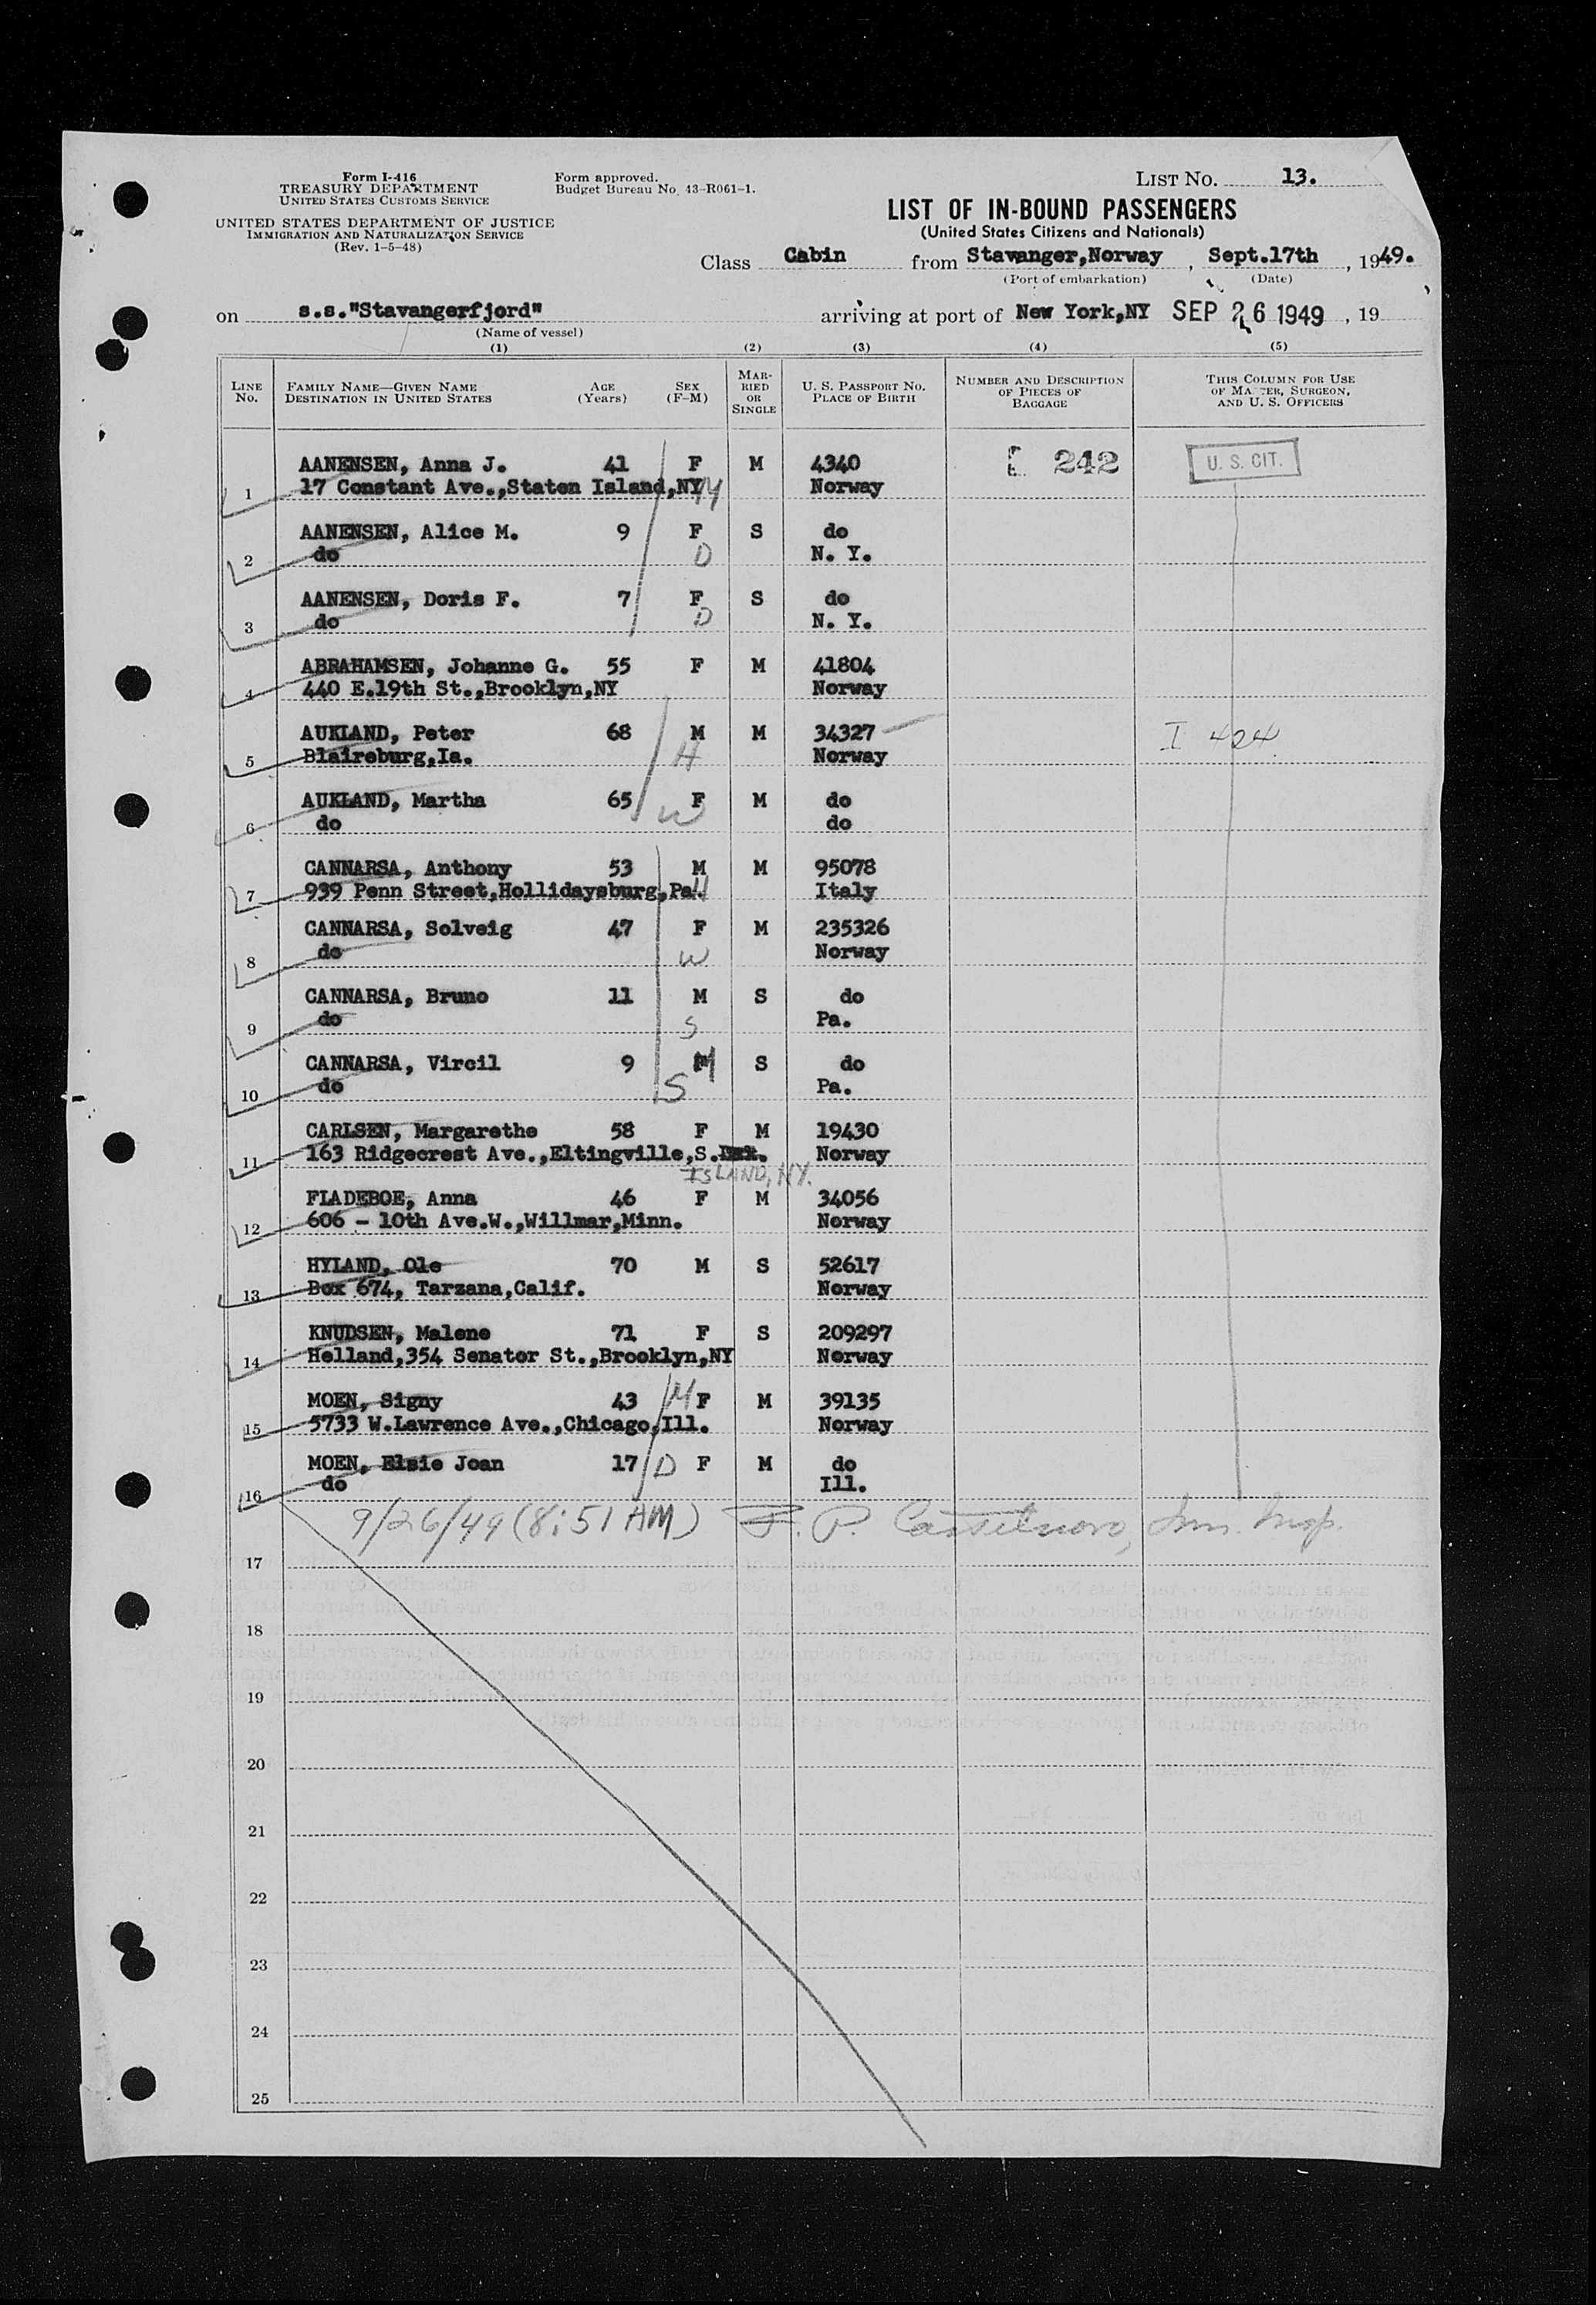 Form I-416
TREASURY DEPARTMENT
UNITED STATES CUSTOMS SERVICE
UNITED STATES DEPARTMENT OF JUSTICE
IMMIGRATION AND NATURALIZATION SERVICE
(Rev. 1-5-48)
Form approved.
Budget Bureau No. 43-R061-1.
LIST NO. 13.
LIST OF IN-BOUND PASSENGERS
(United States Citizens and Nationals)
Class Cabin from Stavanger,Norway , Sept.17th , 1949.
(Port of embarkation) (Date)
on s.s."Stavangerfjord" arriving at port of New York,NY SEP 26 1949 , 19
(Name of vessel)
(1) (2) (3) (4) (5)
LINE NO. FAMILY NAME—GIVEN NAME DESTINATION IN UNITED STATES AGE (Years) SEX (F-M) MARRIED OR SINGLE U. S. PASSPORT NO. PLACE OF BIRTH NUMBER AND DESCRIPTION OF PIECES OF BAGGAGE THIS COLUMN FOR USE OF MASTER, SURGEON, AND U. S. OFFICERS
AANENSEN, Anna J. 41 F M 4340 242 U. S. CIT.
1 17 Constant Ave.,Staten Island,NY M Norway
AANENSEN, Alice M. 9 F S do
2 do D N. Y.
AANENSEN, Doris F. 7 F S do
3 do D N. Y.
ABRAHAMSEN, Johanne G. 55 F M 41804
4 440 E.19th St.,Brooklyn,NY Norway
AUKLAND, Peter 68 M M 34327 I 424
5 Blaireburg,Ia. H Norway
AUKLAND, Martha 65 F M do
6 do W do
CANNARSA, Anthony 53 M M 95078
7 939 Penn Street,Hollidaysburg,Pa. H Italy
CANNARSA, Solveig 47 F M 235326
8 do W Norway
CANNARSA, Bruno 11 M S do
9 do S Pa.
CANNARSA, Vircil 9 M S do
10 do S Pa.
CARLSEN, Margarethe 58 F M 19430
11 163 Ridgecrest Ave.,Eltingville,S. Norway
ISLAND, NY.
FLADEBOE, Anna 46 F M 34056
12 606 - 10th Ave.W.,Willmar,Minn. Norway
HYLAND, Ole 70 M S 52617
13 Box 674, Tarzana,Calif. Norway
KNUDSEN, Malene 71 F S 209297
14 Helland,354 Senator St.,Brooklyn,NY Norway
MOEN, Signy 43 M F M 39135
15 5733 W.Lawrence Ave.,Chicago,Ill. Norway
MOEN, Elsie Joan 17 D F M do
16 do Ill.
9/26/49 (8:51 AM) F. P. Casselnovo, Imm. Insp.
17
18
19
20
21
22
23
24
25